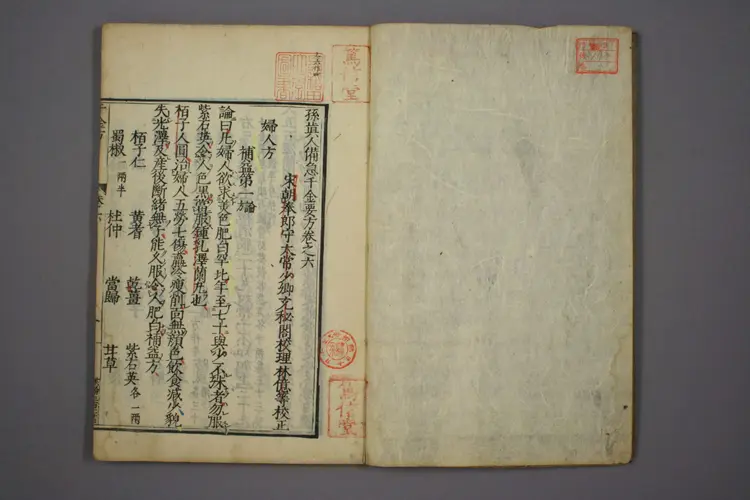 孫真人備急千金要方卷之六
宋朝奉郎守太常少卿充秘閣校理林億等校正
婦人方
補益第一論
論曰凡婦人欲求美色肥白罕比年至七十與少不殊者勿服
紫石英令人色黑當服鍾乳澤蘭丸也
栢子人圓治婦人五勞七傷羸冷瘦削面無顏色飲食減少貌
失光澤及産後斷緒無子能久服令人肥白補益方
栢子仁 黄耆 乾薑 紫石英各二兩
蜀椒一兩半 杜仲 當歸 甘草
萬竹堂